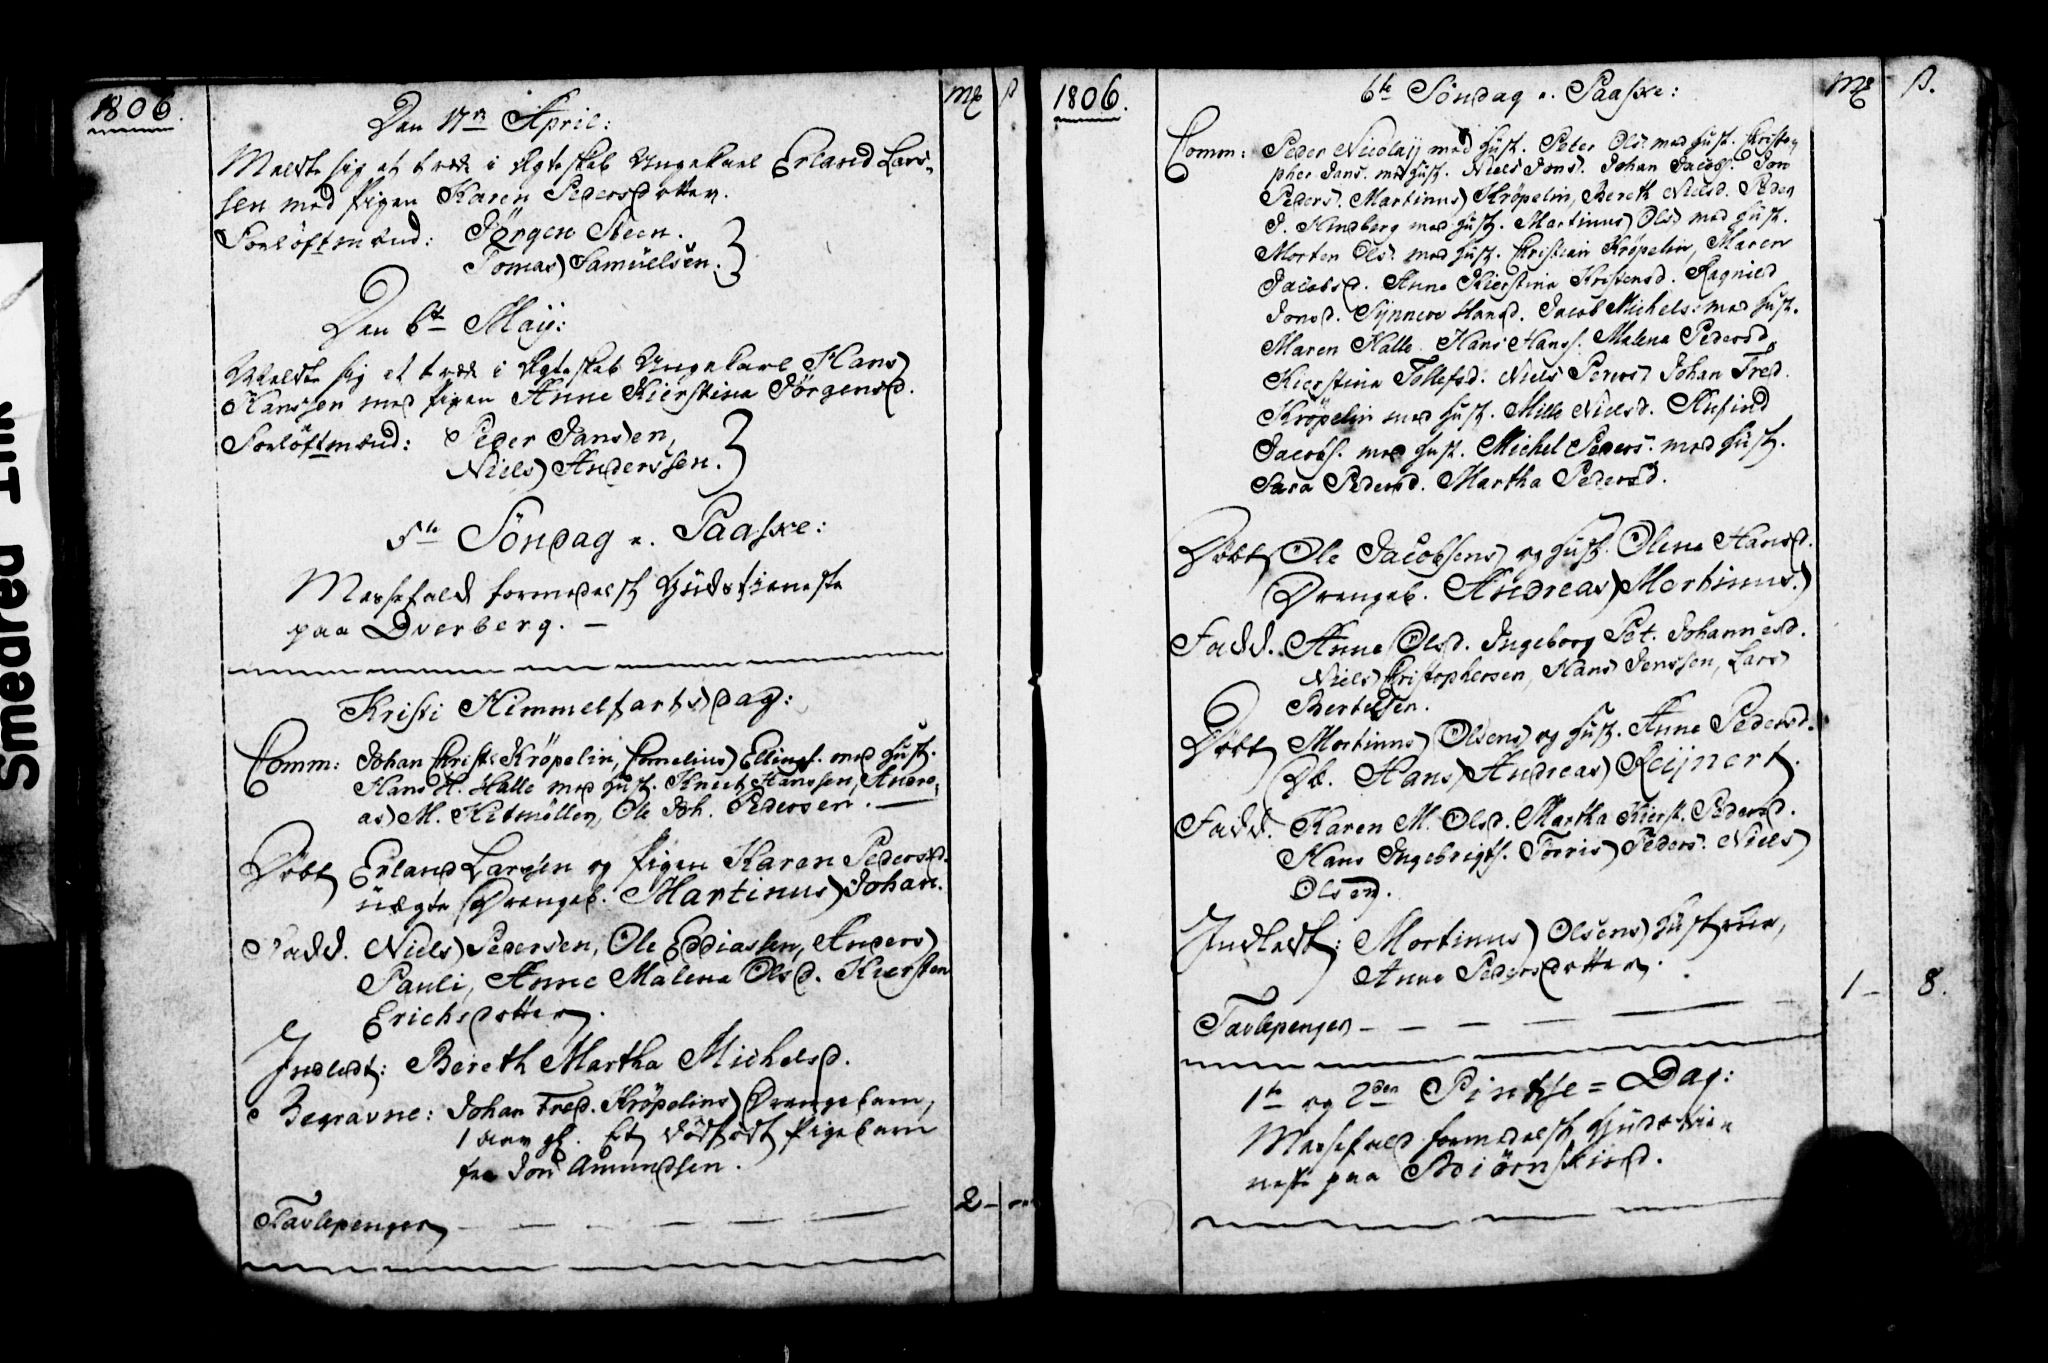 1806.
Mk β
Den 17n April:
Meldte sig at træde i Ægteskab Ungekarl Erland Lars-
sen med Pigen Karen Pedersdotter.
Forlöftmænd: Jörgen Steen.
Tomas Samuelsen.
Den 6te Maij:
Meldte sig at træde i Ægteskab Ungekarl Hans
Hanssen med Pigen Anne Kierstina Jörgensd.
Forlöftmænd: Peder Jansen,
Niels Anderssen.
5te Söndag e. Paaske:
Messefald formedelst Gudstieneste
paa Dverberg. —
Kristi Himmelfarts dag:
Comm: Johan Christ. Kröpelin, Cornelius Ellings. med Hust.
Hans H. Halle med Hust. Knut Hanssen, Andre-
as M. Kitmöller, Ole Joh. Pedersen. —
Döbt Erland Larsen og Pigen Karen Pedersd.
uægte Drengeb. Martinus Johan.
Fadd. Niels Pedersen, Ole Eddiassen, Anders
Pauli, Anne Malena Olsd. Kiersten
Erichsdotter.
Indledt: Bereth Martha Michelsd.
Begravne: Johan Fred. Kröpelins Drengebarn,
1 gl. Et dödfödt Pigebarn
fra Jon Amundsen.
Tavlepenger — — — — — 2 –
1806.
Mk β.
6te Söndag e. Paaske:
Comm: Peder Nicolaij med Hust. Peter Ols. med Hust. Christo-
pher Jans. med Hust. Niels Jons. Johan Jacobs. Jon
Peders. Martinus Kröpelin, Bereth Nielsd. Peder
J. Hindberg med Hust. Martinus Ols. med Hust.
Morten Ols. med Hust. Christian Kröpelin, Maren
Jacobsd. Anne Kierstina Kristensd. Ragnild
Jonsd. Synneve Hansd. Jacob Michels: med Hust.
Maren Halle. Hans Hanss. Malena Pedersd.
Kierstina Tollefsd. Niels Peders. Johan Fred.
Kröpelin med Hust. Mille Nielsd. Anfind
Jacobs. med Hust. Michel Peders. med Hust.
Sara Pedersd. Martha Pedersd.
Döbt Ole Jacobsens og Hust. Olena Hansd.
Drengeb. Andreas Mortinus.
Fadd. Anne Olsd. Ingeborg Pet. Johannesd.
Niels Christophersen, Hans Jenssen, Lars
Bertelsen.
Döbt Mortinus Olsens og Hust. Anne Pedersd.
Db. Hans Andreas Reijnert.
Fadd. Karen M. Olsd. Martha Kierst. Pedersd.
Hans Ingebrigts. Torris Peders. Niels
Olsen.
Indledt: Mortinus Olsens Hustrue,
Anne Pedersdotter.
Tavlepenger — — — — — 1 – 8.
1te og 2den Pintse = Dag:
Messefald formedelst Gudstien
neste paa Biörnskind.
Smedred